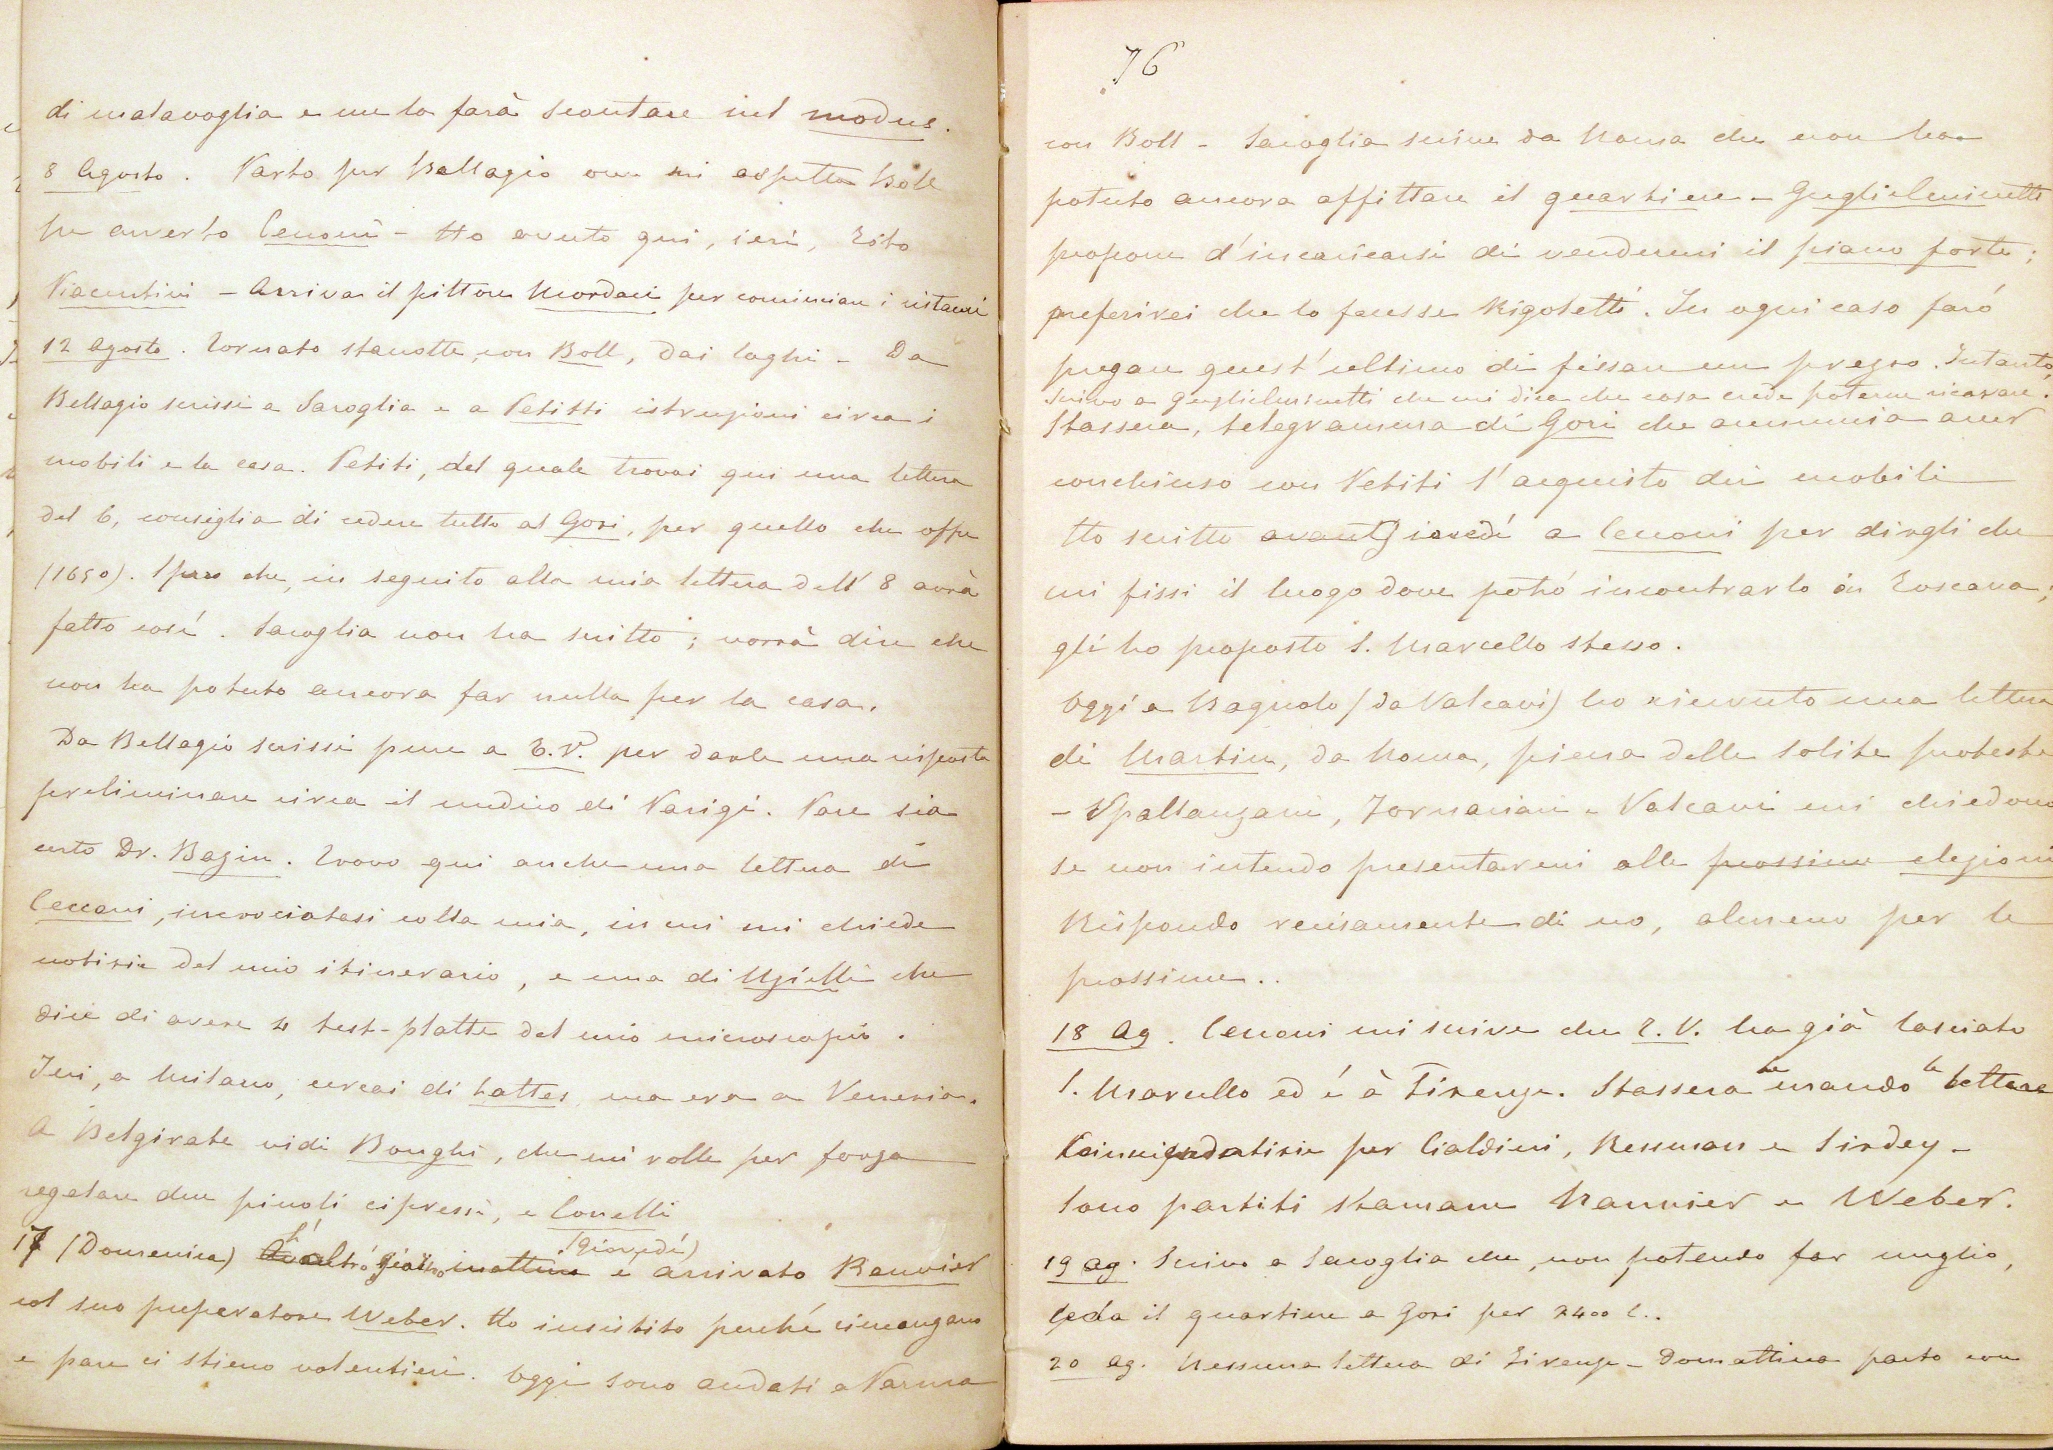 di malavoglia e me la farà scontare nel modus.
8 Agosto. Parto per Bellagio ove mi aspetta Boll
Ho avuto qui, ieri, Zoto
Piacentini – Arriva il pittore Mordaci per cominciare i ristauri
12 Agosto. Tornato stanotte, con Boll, dai laghi – Da
Bellagio scrissi a Saroglia e a Petitti istruzioni circa i
mobili e la casa. Petiti, del quale trovai qui una lettera
del 6, consiglia di cedere tutto al Gori, per quello che offre
(1650). Spero che, in seguito alla mia lettera dell' 8 avrà
fatto così. Saroglia non ha scritto; vorrà dire che
non ha potuto ancora far nulla per la casa.
Da Bellagio scrissi pure a E.V. per darle una risposta
preliminare circa il medico di Parigi. Pare sia
certo Dr. Bazin. Trovo qui anche una lettera di
Cecconi, incrociatasi colla mia, in cui mi chiede
notizie del mio itinerario, e una di Uzielli che
dice di avere 4 test-platte del mio microscopio.
Ieri, a Milano, cercai di Lattes ma era a Venezia.
A Belgirate vidi Bonghi, che mi volle per forza
regalare due piccoli cipressi, e Conelli
17 (Domenica) L'altro giorno mattina (giovedì) è arrivato Ranvier
col suo preparatore Weber. Ho insistito perché rimangano
e pare ci stieno volentieri. Oggi sono andati a Parma
76
con Boll – Saroglia scrive da Roma che non ha
potuto ancora affittare il quartiere – Guglielminetti
propone d'incaricarsi di vendermi il piano forte;
preferirei che lo facesse Rigoletti. In ogni caso farò
pregare quest'ultimo di fissare un prezzo. Intanto,
scrivo a Guglielminetti che mi dica che cosa crede poterne ricavare.
Stassera, telegramma di Gori che annunzia aver
conchiuso con Petiti l'acquisto dei mobili
Ho scritto giovedì a Cecconi per dirgli che
mi fissi il luogo dove potrò incontrarlo in Toscana;
gli ho proposto S. Marcello stesso.
Oggi a Bagnolo (da Valcavi) ho ricevuto una lettera
di Martin, da Roma, piena delle solite proteste
– Spallanzani, Fornaciari e Valcavi mi chiedono
se non intendo presentarmi alle prossime elezioni
Rispondo recisamente di no, almeno per le
prossime..
18 Ag. Cecconi mi scrive che E.V. ha già lasciato
S. Marcello ed é à Firenze. Stassera le mando le lettere
commendatizie per Cialdini, Ressman e Sirdey –
Sono partiti stamane Ranvier e Weber.
19 ag. Scrivo a Saroglia che, non potendo far meglio,
ceda il quartiere a Gori per 2400 l..
20 ag. Nessuna lettera di Firenze – Domattina parto con